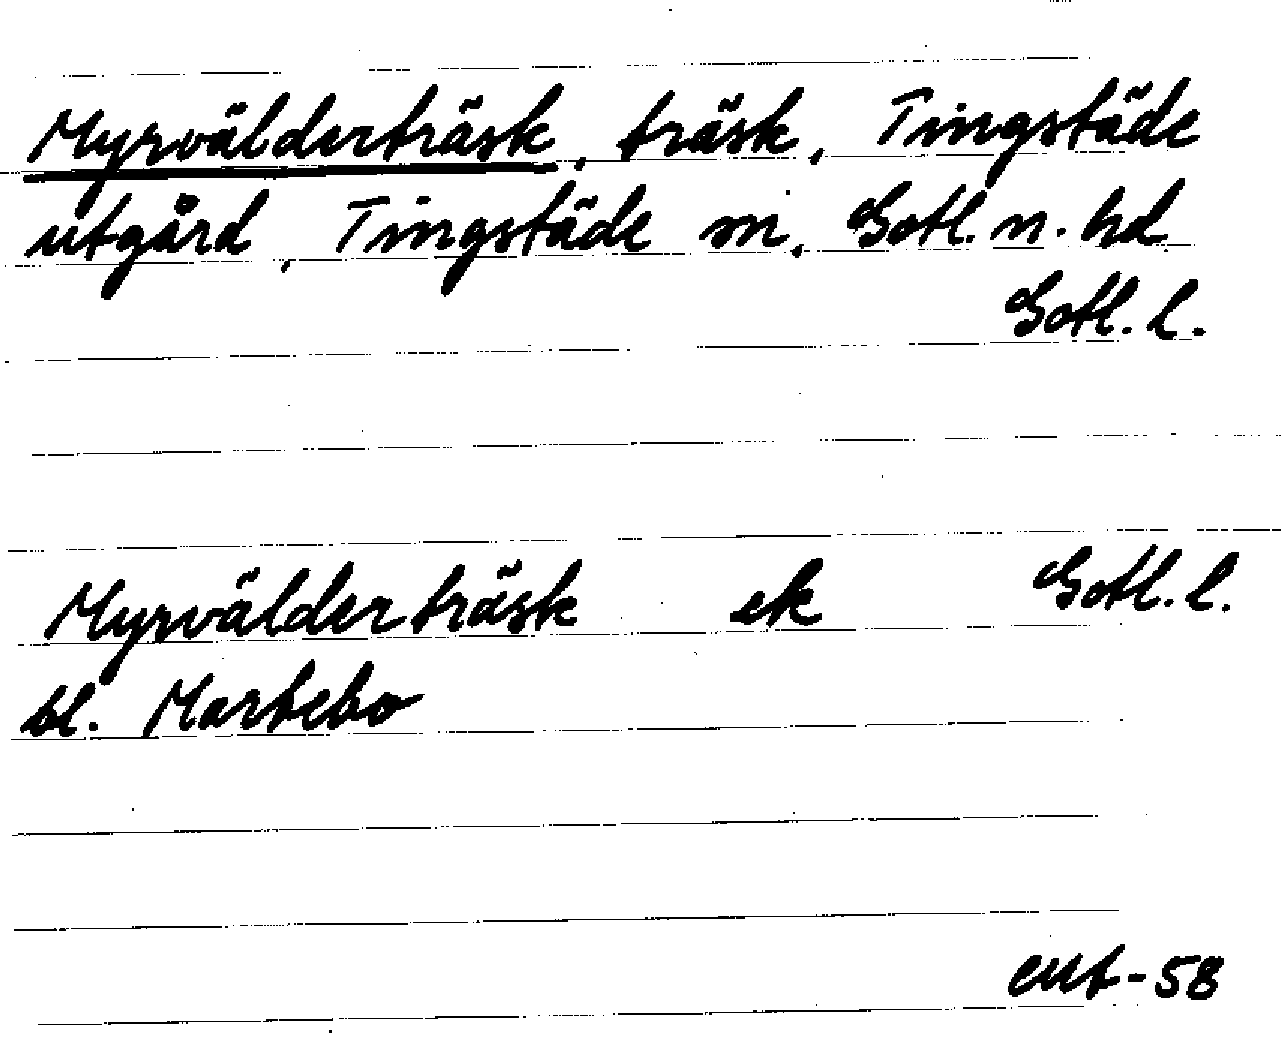 Myrvälderträsk, träsk, Tingstäde
utgård, Tingstäde sn, Gotl. n. hd
Gotl. l.
Myrvälderträsk ek Gotl. l.
bl. Martebo
eut-58